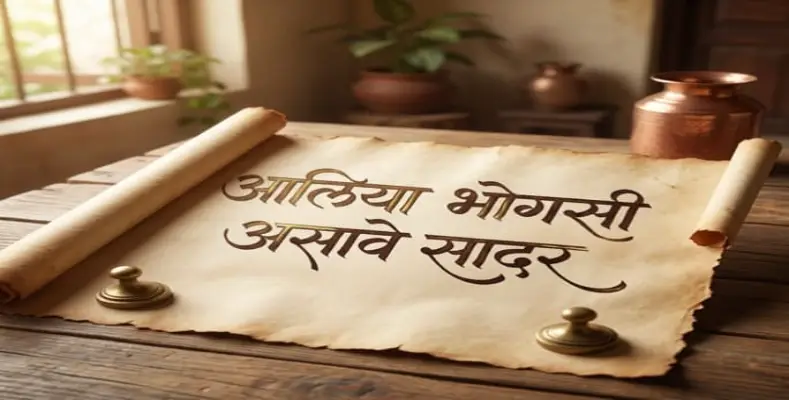 आलिया भोगसी
असावे सादर